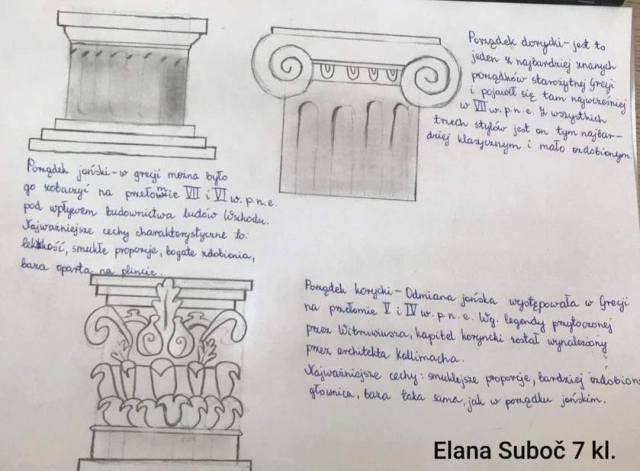 Porządek dorycki - jest to
jeden z najbardziej znanych
porządków starożytnej Grecji
i pojawił się tam najwcześniej
w VII w. p. n. e. Z wszystkich
trzech stylów jest on tym najbar-
dziej klasycznym i mało ozdobionym
Porządek joński - w grecji można było
go zobaczyć na przełomie VII i VI w. p. n. e.
pod wpływem budownictwa ludów Wschodu.
Najważniejsze cechy charakterystyczne to:
lekkość, smukłe proporcje, bogate zdobienia,
baza oparta na plincie.
Porządek korycki - Odmiana jońska występowała w Grecji
na przełomie V i IV w. p. n. e. Wg. legendy przytoczonej
przez Witruwiusza, kapitel koryncki został wynaleziony
przez architekta Kallimacha.
Najważniejsze cechy: smuklejsze proporcje, bardziej ozdobiona
głowica, baza taka sama, jak w porządku jońskim.
Elana Suboč 7 kl.